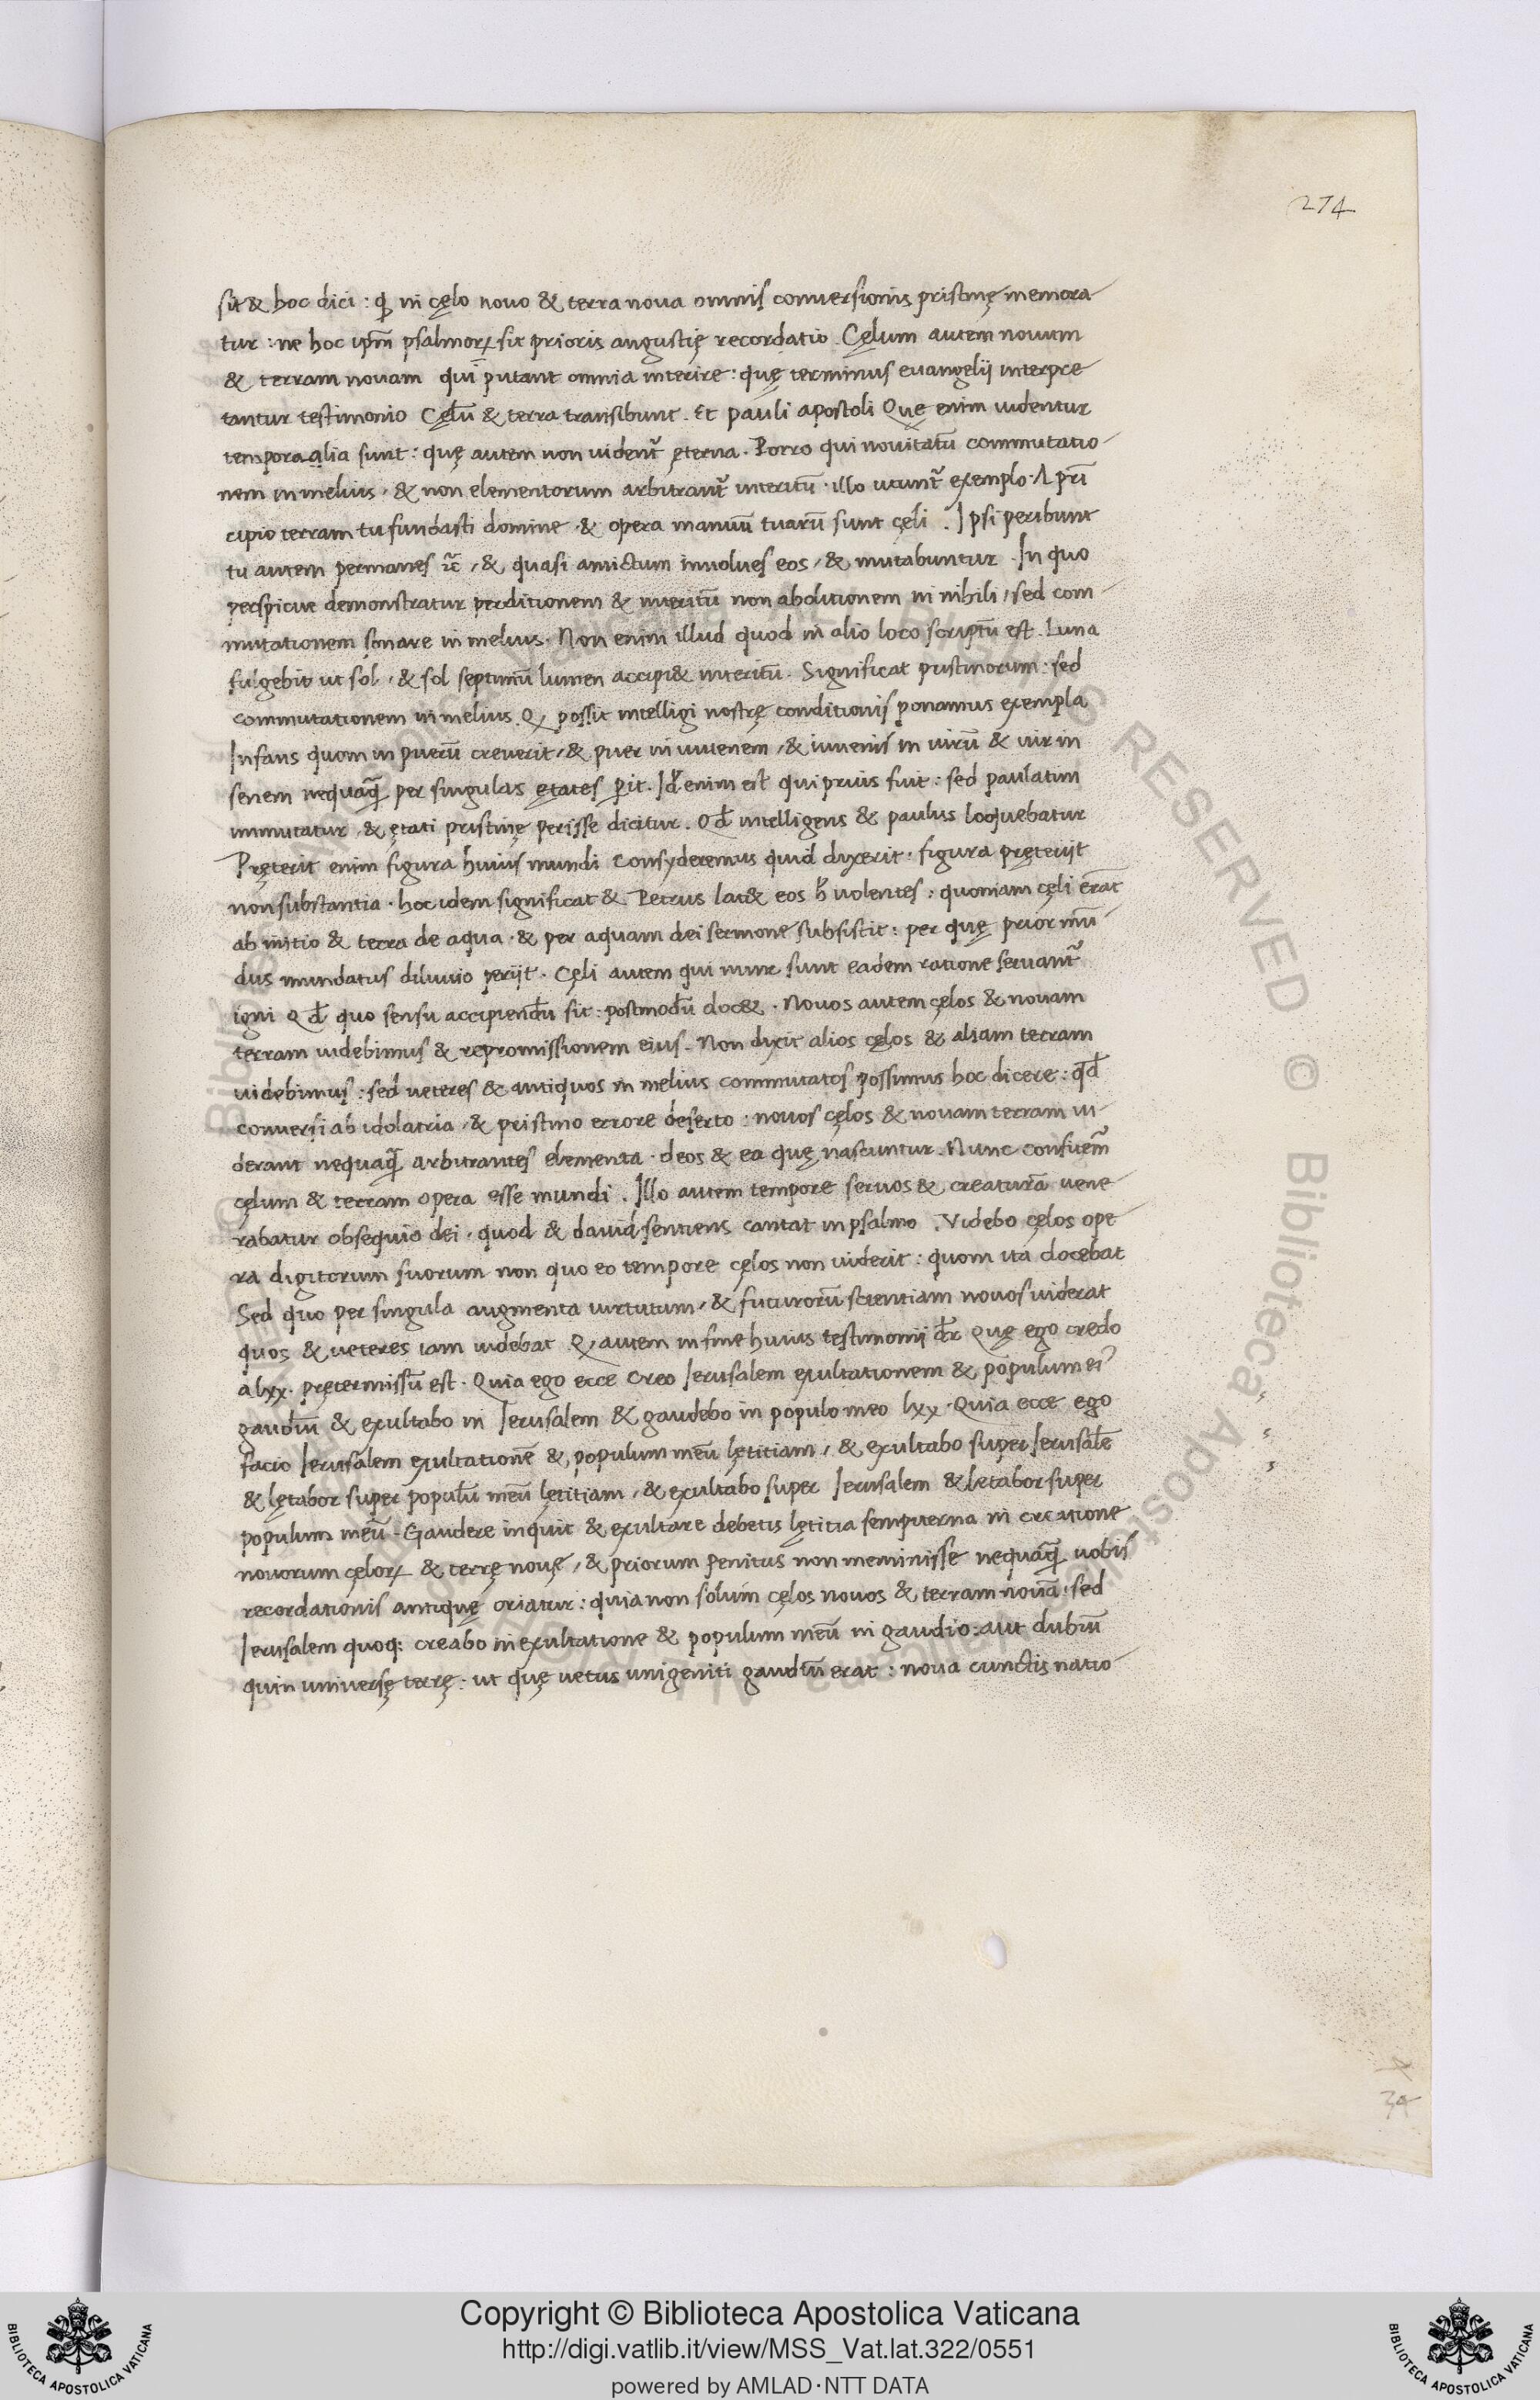 274
sit & hoc dici : ꝙ in cęlo novo & terra nova omnis conversionis pristinę memora-
tur : ne hoc ipm̄ psalmorꝝ sit prioris angustię recordatio . Cęlum autem novum
& terram novam qui putant omnia interire : quę terminus evangelij interpre
tantur testimonio Cęlū & terra transibunt . Et pauli apostoli Quę enim videntur
temporaalia sunt : quę autem non vident᷑ ęterna . Porro qui novitatū commutatio-
nem in melius , & non elementorum arbitrant᷑ interitū . illo utunt᷑ exemplo . A prī
cipio terram tu fundasti domine & opera manuū tuarū sunt cęli . Ipsi peribunt
tu autem permanes &c̄ , & quasi amictum involves eos , & mutabuntur . In quo
perspicue demonstratur perditionem & interitū non abolitionem in nihili , sed com-
mutationem sonare in melius . Non enim illud quod in alio loco scriptū est . Luna
fulgebit ut sol , & sol septimū lumen accipi& interitū . Significat pristinorum : sed
commutationem in melius . Q, possit intelligi nostrę conditionis ponamus exempla
Infans quom in puerū creverit , & puer in iuvenem , & iuvenis in virū & vir in
senem nequaꝗ̄ per singulas ętates ꝑit . Id̄ enim est qui prius fuit : sed paulatim
immutatur , & ętati pristinę perisse dicitur . Qd̄ intelligens & paulus loquebatur
Pręterit enim figura huius mundi Consyderemus quid dixerit . figura pręteriit
non substantia . hoc idem significat & Petrus lat& eos h̓ volentes : quoniam cęli erāt
ab initio & terra de aqua . & per aquam dei sermone subsistit : per quę prior mū-
dus mundatus diluvio periit . Cęli autem qui nunc sunt eadem ratione servant᷑
igni Qd̄ quo sensu accipiendū sit : postmodū doc& . Novos autem cęlos & novam
terram videbimus & repromissionem eius . Non dixit alios cęlos & aliam terram
videbimus : sed veteres & antiquos in melius commutatos possumus hoc dicere : qd̄
conversi ab idolatria , & pristino errore deserto : novos cęlos & novam terram vi-
derant nequaꝗ̄ arbitrantes elementa . deos & ea quę nascuntur . Nunc
cęlum & terram opera esse mundi . Illo autem tempore servos & creaturā vene
rabatur obsequio dei . quod & david sentiens cantat in psalmo . Videbo cęlos ope
ra digitorum suorum non quo eo tempore cęlos non viderit : quom ita docebat
Sed quo per singula augmenta virtutum , & futurorū scientiam novos viderat
quos & veteres iam videbat Q, autem in fine huius testimonij dr̄ Quę ego credo
a lxx . pretermissū est . Quia ego ecce creo Ierusalem exultationem & populum ei᾿
gaudiū & exultabo in Ierusalem & gaudebo in populo meo lxx . Quia ecce ego
facio Ierusalem exultationē & populum meū lętitiam , & exultabo super Ierusalē
& lętabor super populū meū lętitiam , & exultabo super Ierusalem & letabor super
populum meū . Gaudere inquit & exultare debetis lętitia sempiterna in creatione
novorum cęlorꝝ & terrę novę , & priorum penitus non meminisse nequaꝗ̄ vobis
recordationis antiquę oriatur : quia non solum cęlos novos & terram novā : sed
Ierusalem quoq: creabo in exultatione & populum meū in gaudio : aut dubiū
quin universę terrę : ut quę vetus unigeniti gaudiū erat : nova cunctis natio-
Copyright © Biblioteca Apostolica Vaticana
http://digi.vatlib.it/view/MSS_Vat.lat.322/0551
powered by AMLAD·NTT DATA
BIBLIOTECA APOSTOLICA VATICANA
BIBLIOTECA APOSTOLICA VATICANA